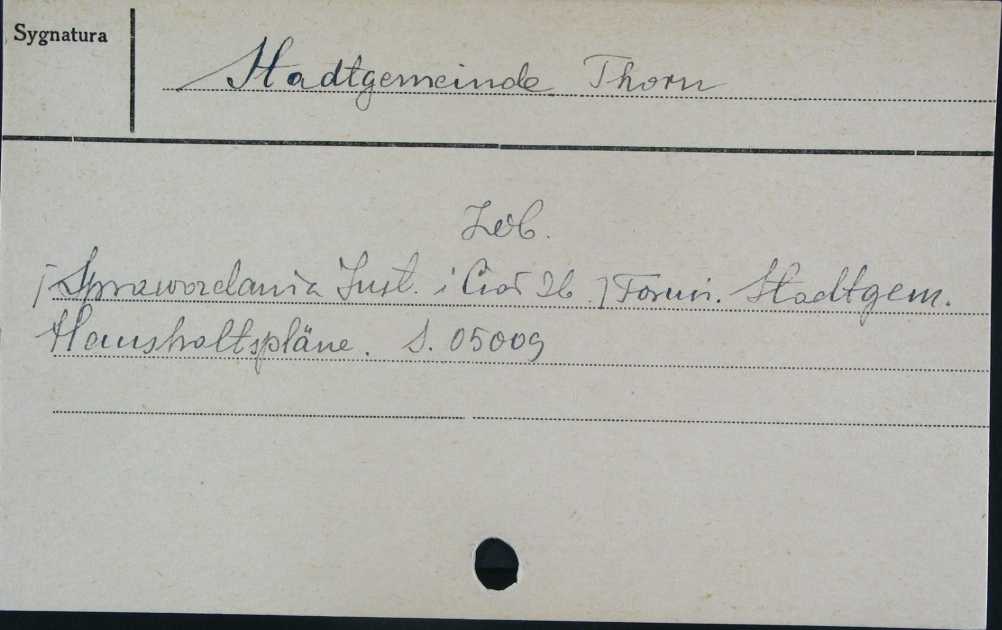 Sygnatura
Stadtgemeinde Thorn
Zob.
[Sprawozdania Inst. i Ciał Zb.] Toruń. Stadtgem.
Haushaltspläne. S. 05009